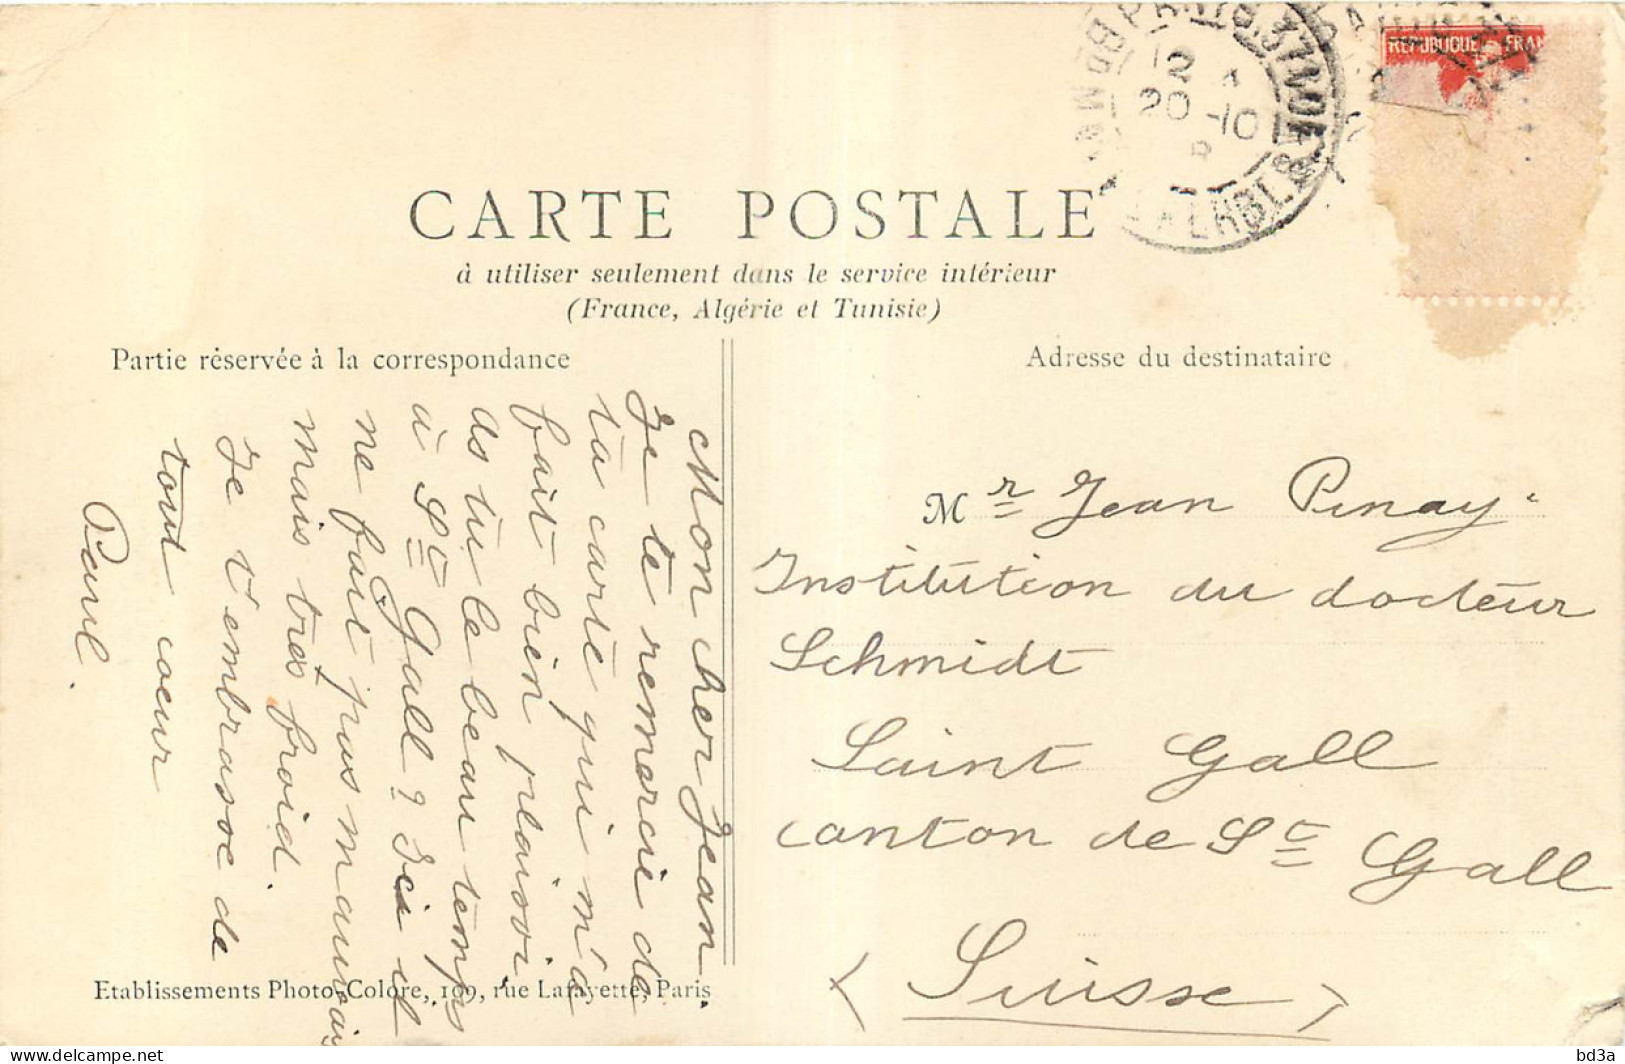 REPUBLIQUE FRAN
12
20 -10
CARTE POSTALE
à utiliser seulement dans le service intérieur
(France, Algérie et Tunisie)
Partie réservée à la correspondance
Adresse du destinataire
Mon cher Jean.
Je te remercie de
ta carte qui m'a
fait bien plaisir
as tu le beau temps
à St Gall ? Ici il
ne fait pas mauvais
mais très froid.
Je t'embrasse de
tout coeur
Paul.
Mr Jean Pinay
Institution du docteur
Schmidt
Saint Gall
canton de St Gall
(Suisse)
Etablissements Photo-Colore, 109, rue Lafayette, Paris
bd3a